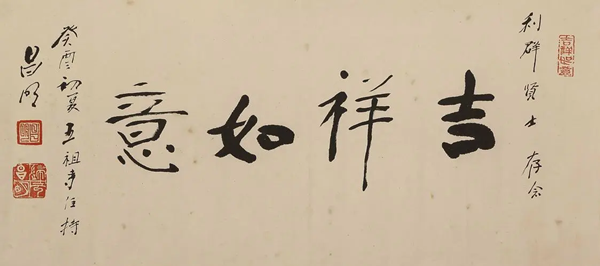 利群贤士 存念
吉祥如意
癸酉初夏五祖寺住持
昌明